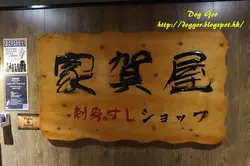 Dog Gor
http://doggor.blogspot.hk/
家賀屋
刺身すしショップ